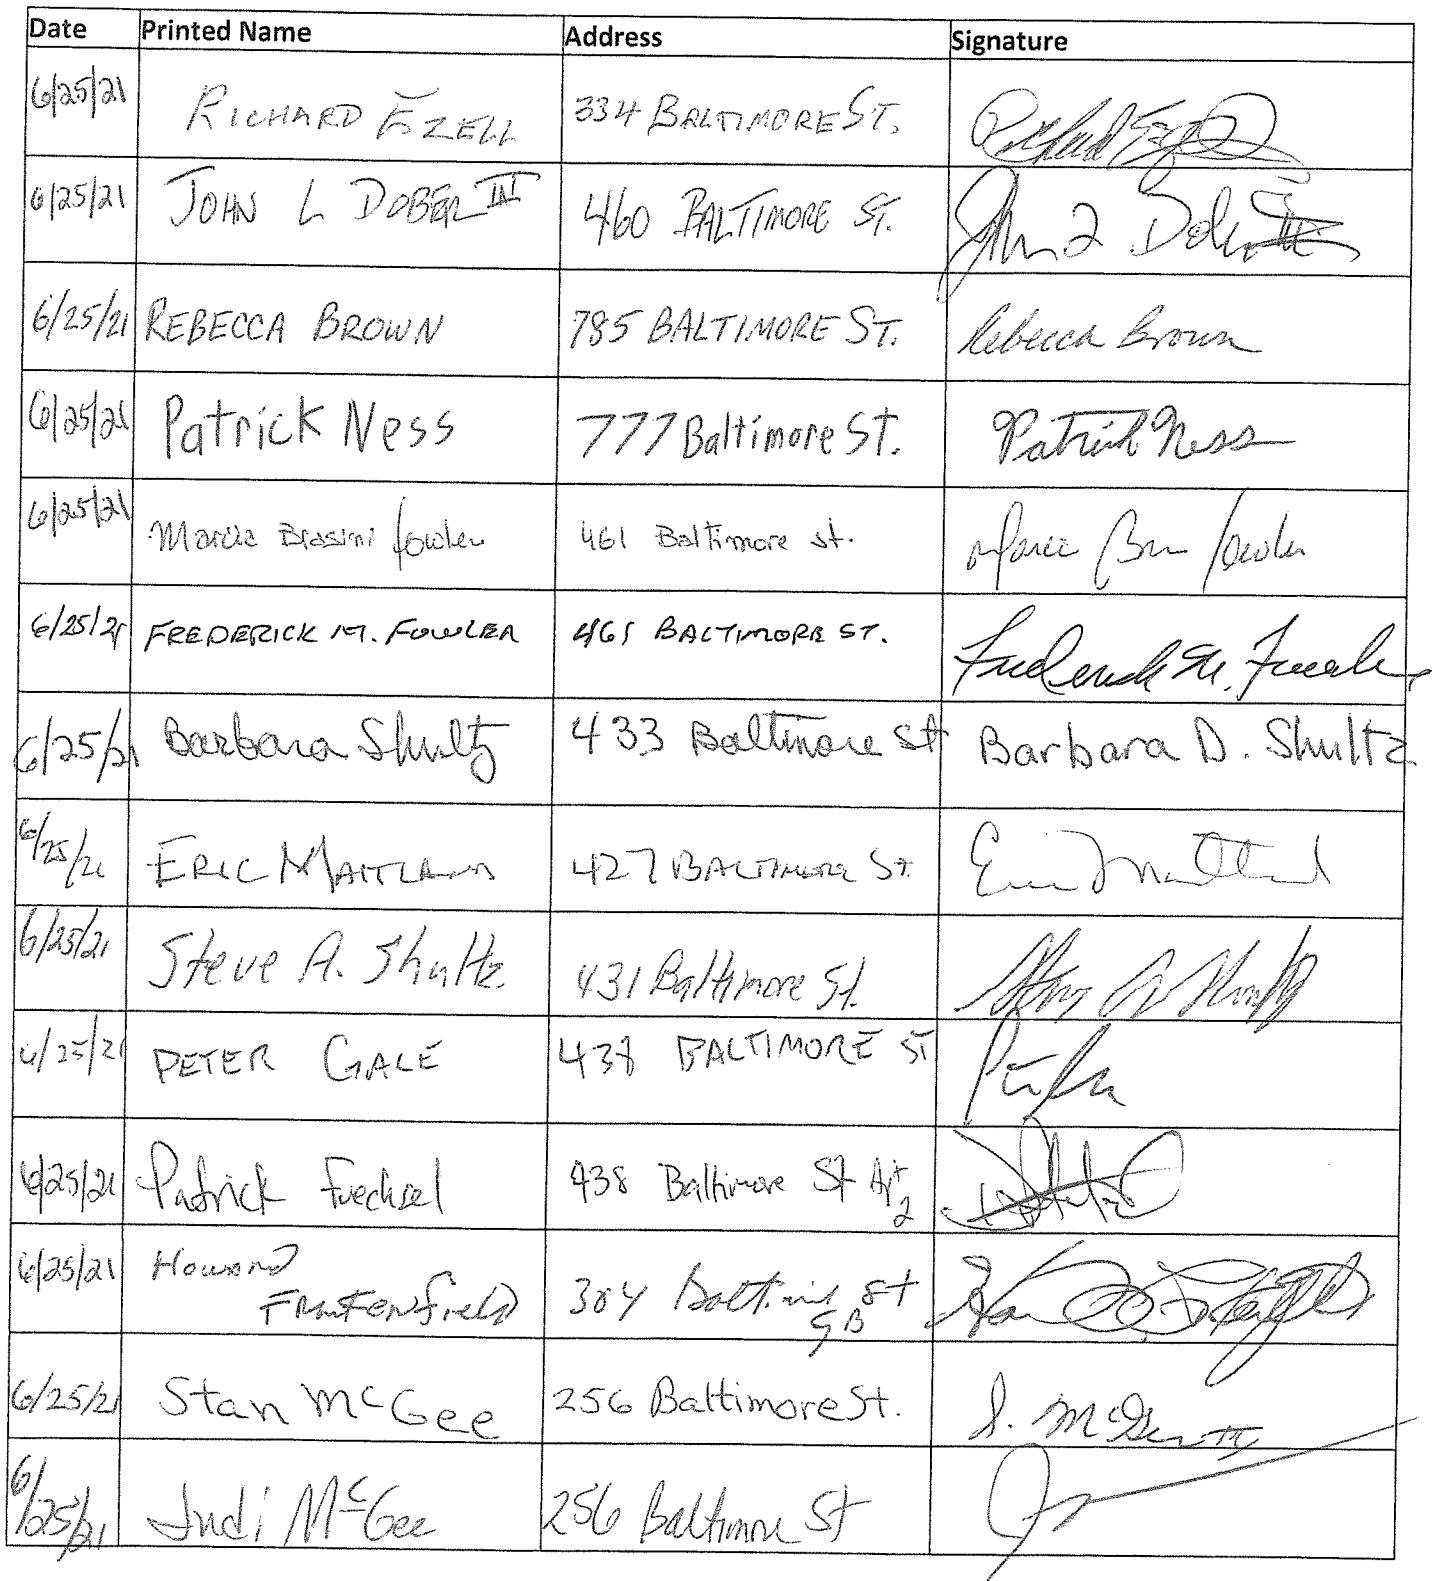 Date Printed Name Address Signature
6/25/21 RICHARD EZELL 334 BALTIMORE ST.
6/25/21 JOHN L DOBER III 460 BALTIMORE ST. John L Dober III
6/25/21 REBECCA BROWN 785 BALTIMORE ST. Rebecca Brown
6/25/21 Patrick Ness 777 Baltimore St. Patrick Ness
6/25/21 Marcia Brasini fowler 461 Baltimore st.
6/25/21 FREDERICK M. FOWLER 461 BALTIMORE ST. Frederick M. Fowler
6/25/21 Barbara Shultz 433 Baltimore St Barbara D. Shultz
6/25/21 ERIC MAITLAND 427 BALTIMORE ST. Eric Maitland
6/25/21 Steve A. Shultz 431 Baltimore St.
6/25/21 PETER GALE 438 BALTIMORE ST
6/25/21 Patrick Fuechsel 438 Baltimore St Apt
2
6/25/21 Howard
304 Baltimore St
6/25/21 Stan McGee 256 Baltimore St.
6/25/21 Judi McGee 256 Baltimore St